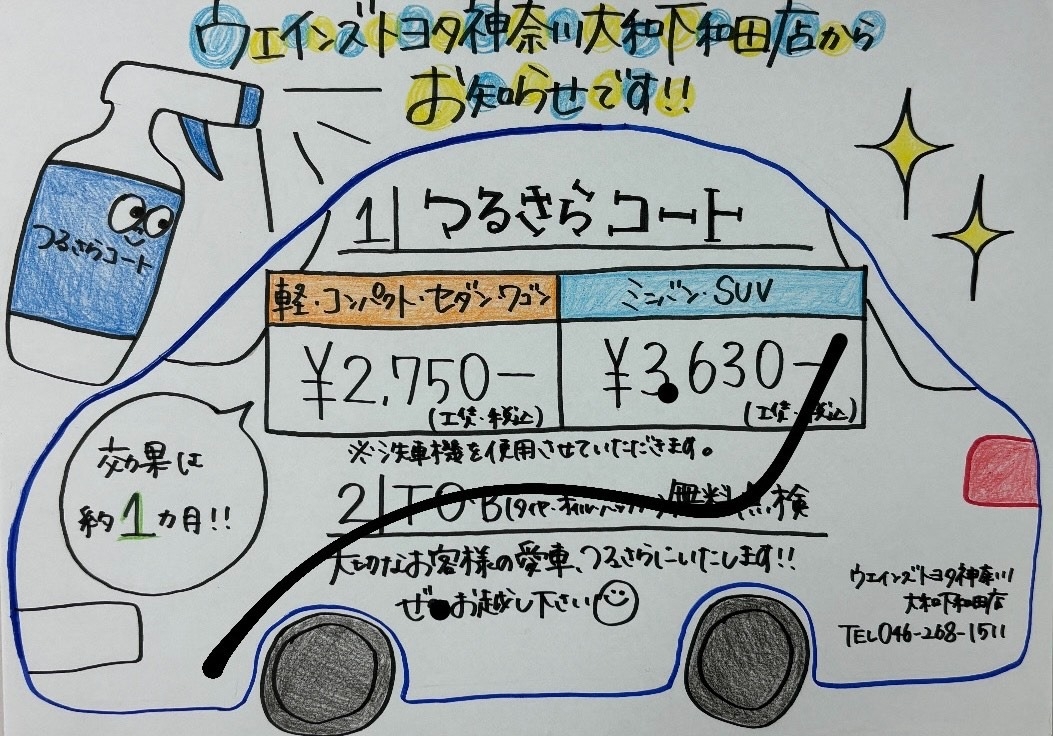 ウエインズトヨタ神奈川大和下和田店から
お知らせです!!
つるさらコート
1 つるさらコート
軽・コンパクト・セダン・ワゴン
ミニバン・SUV
¥2,750-
(工賃・税込)
¥3,630-
(工賃・税込)
※洗車機を使用させていただきます。
効果は
約1カ月!!
2 T・O・B(タイヤ・オイル・バッテリー)無料点検
大切なお客様の愛車、つるさらにいたします!!
お越し下さい
ウエインズトヨタ神奈川
大和下和田店
TEL046-268-1511